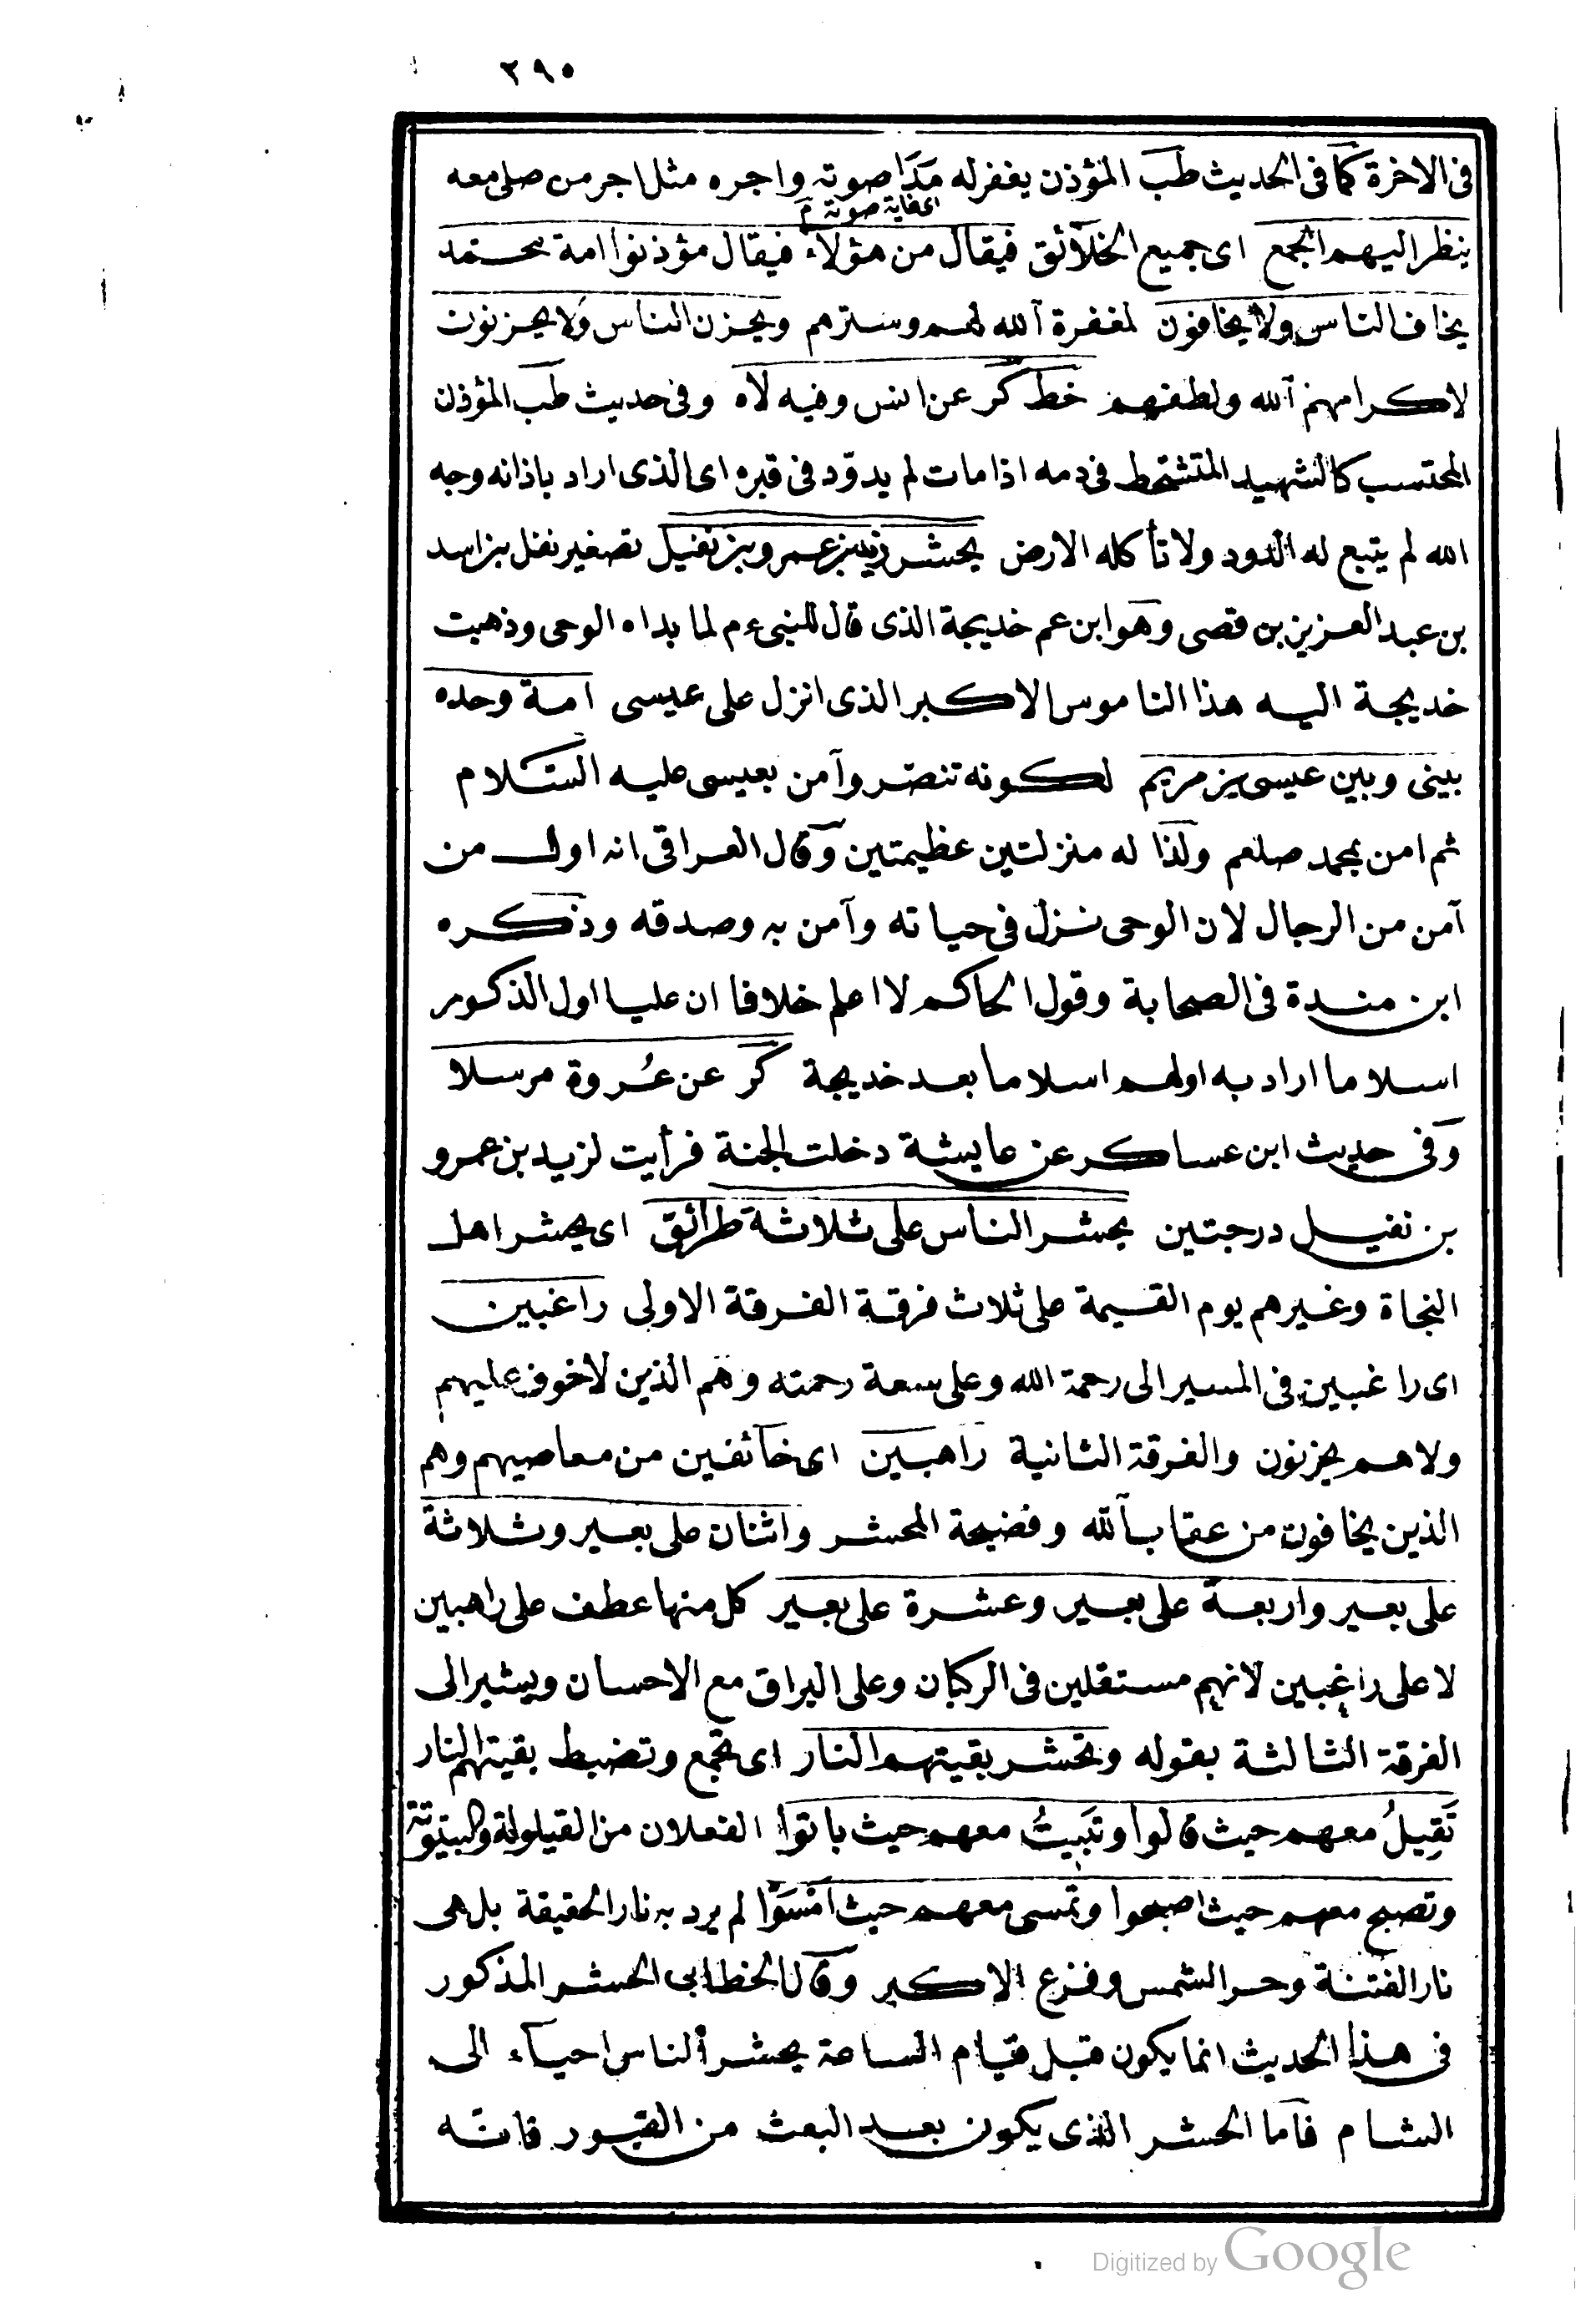 ٢٩٥
فى الاخرة كما فى الحديث طب المؤذن يغفر له مدا صوته واجره مثل اجر من صلى معه
اى غاية صوته م
ينظر اليهم الجمع اى جميع الخلائق فيقال من هؤلاء فيقال مؤذنوا امة محمد
يخاف الناس ولا يخافون لمغفرة الله لهم وسترهم ويحزن الناس ولا يحزنون
لاكرامهم الله ولطفهم خط كر عن انس وفيه لاه وفى حديث طب المؤذن
المحتسب كالشهيد المتشحط فى دمه اذا مات لم يدوّد فى قبره اى الذى اراد باذانه وجه
الله لم يتبع له الدود ولا تأكله الارض يحشر زيد بن عمرو بن نفيل تصغير نفل بن اسد
بن عبد العزيز بن قصى وهو ابن عم خديجة الذى قال للنبى ءم لما بداه الوحى وذهبت
خديجة اليه هذا الناموس الاكبر الذى انزل على عيسى امة وحده
بينى وبين عيسى بن مريم لكونه تنصر وآمن بعيسى عليه السلام
ثم امن بمحمد صلعم ولذا له منزلتين عظيمتين وقال العراقى انه اول من
آمن من الرجال لان الوحى نزل فى حياته وآمن به وصدقه وذكره
ابن مندة فى الصحابة وقول الحاكم لا اعلم خلافا ان عليا اول الذكور
اسلاما اراد به اولهم اسلاما بعد خديجة كر عن عُروة مرسلا
وفى حديث ابن عساكر عن عايشة دخلت الجنة فرأيت لزيد بن عمرو
بن نفيل درجتين يحشر الناس على ثلاثة طرائق اى يحشر اهل
النجاة وغيرهم يوم القيمة على ثلاث فرقة الفرقة الاولى راغبين
اى راغبين فى المسير الى رحمة الله وعلى سعة رحمته وهم الذين لا خوف عليهم
ولا هم يحزنون والفرقة الثانية راهبين اى خائفين من معاصيهم وهم
الذين يخافون من عقاب الله وفضيحة المحشر واثنان على بعير وثلاثة
على بعير واربعة على بعير وعشرة على بعير كل منها عطف على راهبين
لا على راغبين لانهم مستقلين فى الركبان وعلى البراق مع الاحسان ويشير الى
الفرقة الثالثة بقوله وتحشر بقيتهم النار اى تجمع وتضبط بقيتهم النار
تَقِيلُ معهم حيث قالوا وتَبِيتُ معهم حيث باتوا الفعلان من القيلولة والبيتوتة
وتصبح معهم حيث اصبحوا وتمسى معهم حيث امْسَوْا لم يرد به نار الحقيقة بل هى
نار الفتنة وحر الشمس وفزع الاكبر وقال الخطابى الحشر المذكور
فى هذا الحديث انما يكون قبل قيام الساعة يحشر الناس احياء الى
الشام فاما الحشر الذى يكون بعد البعث من القبور فانه
Digitized by Google